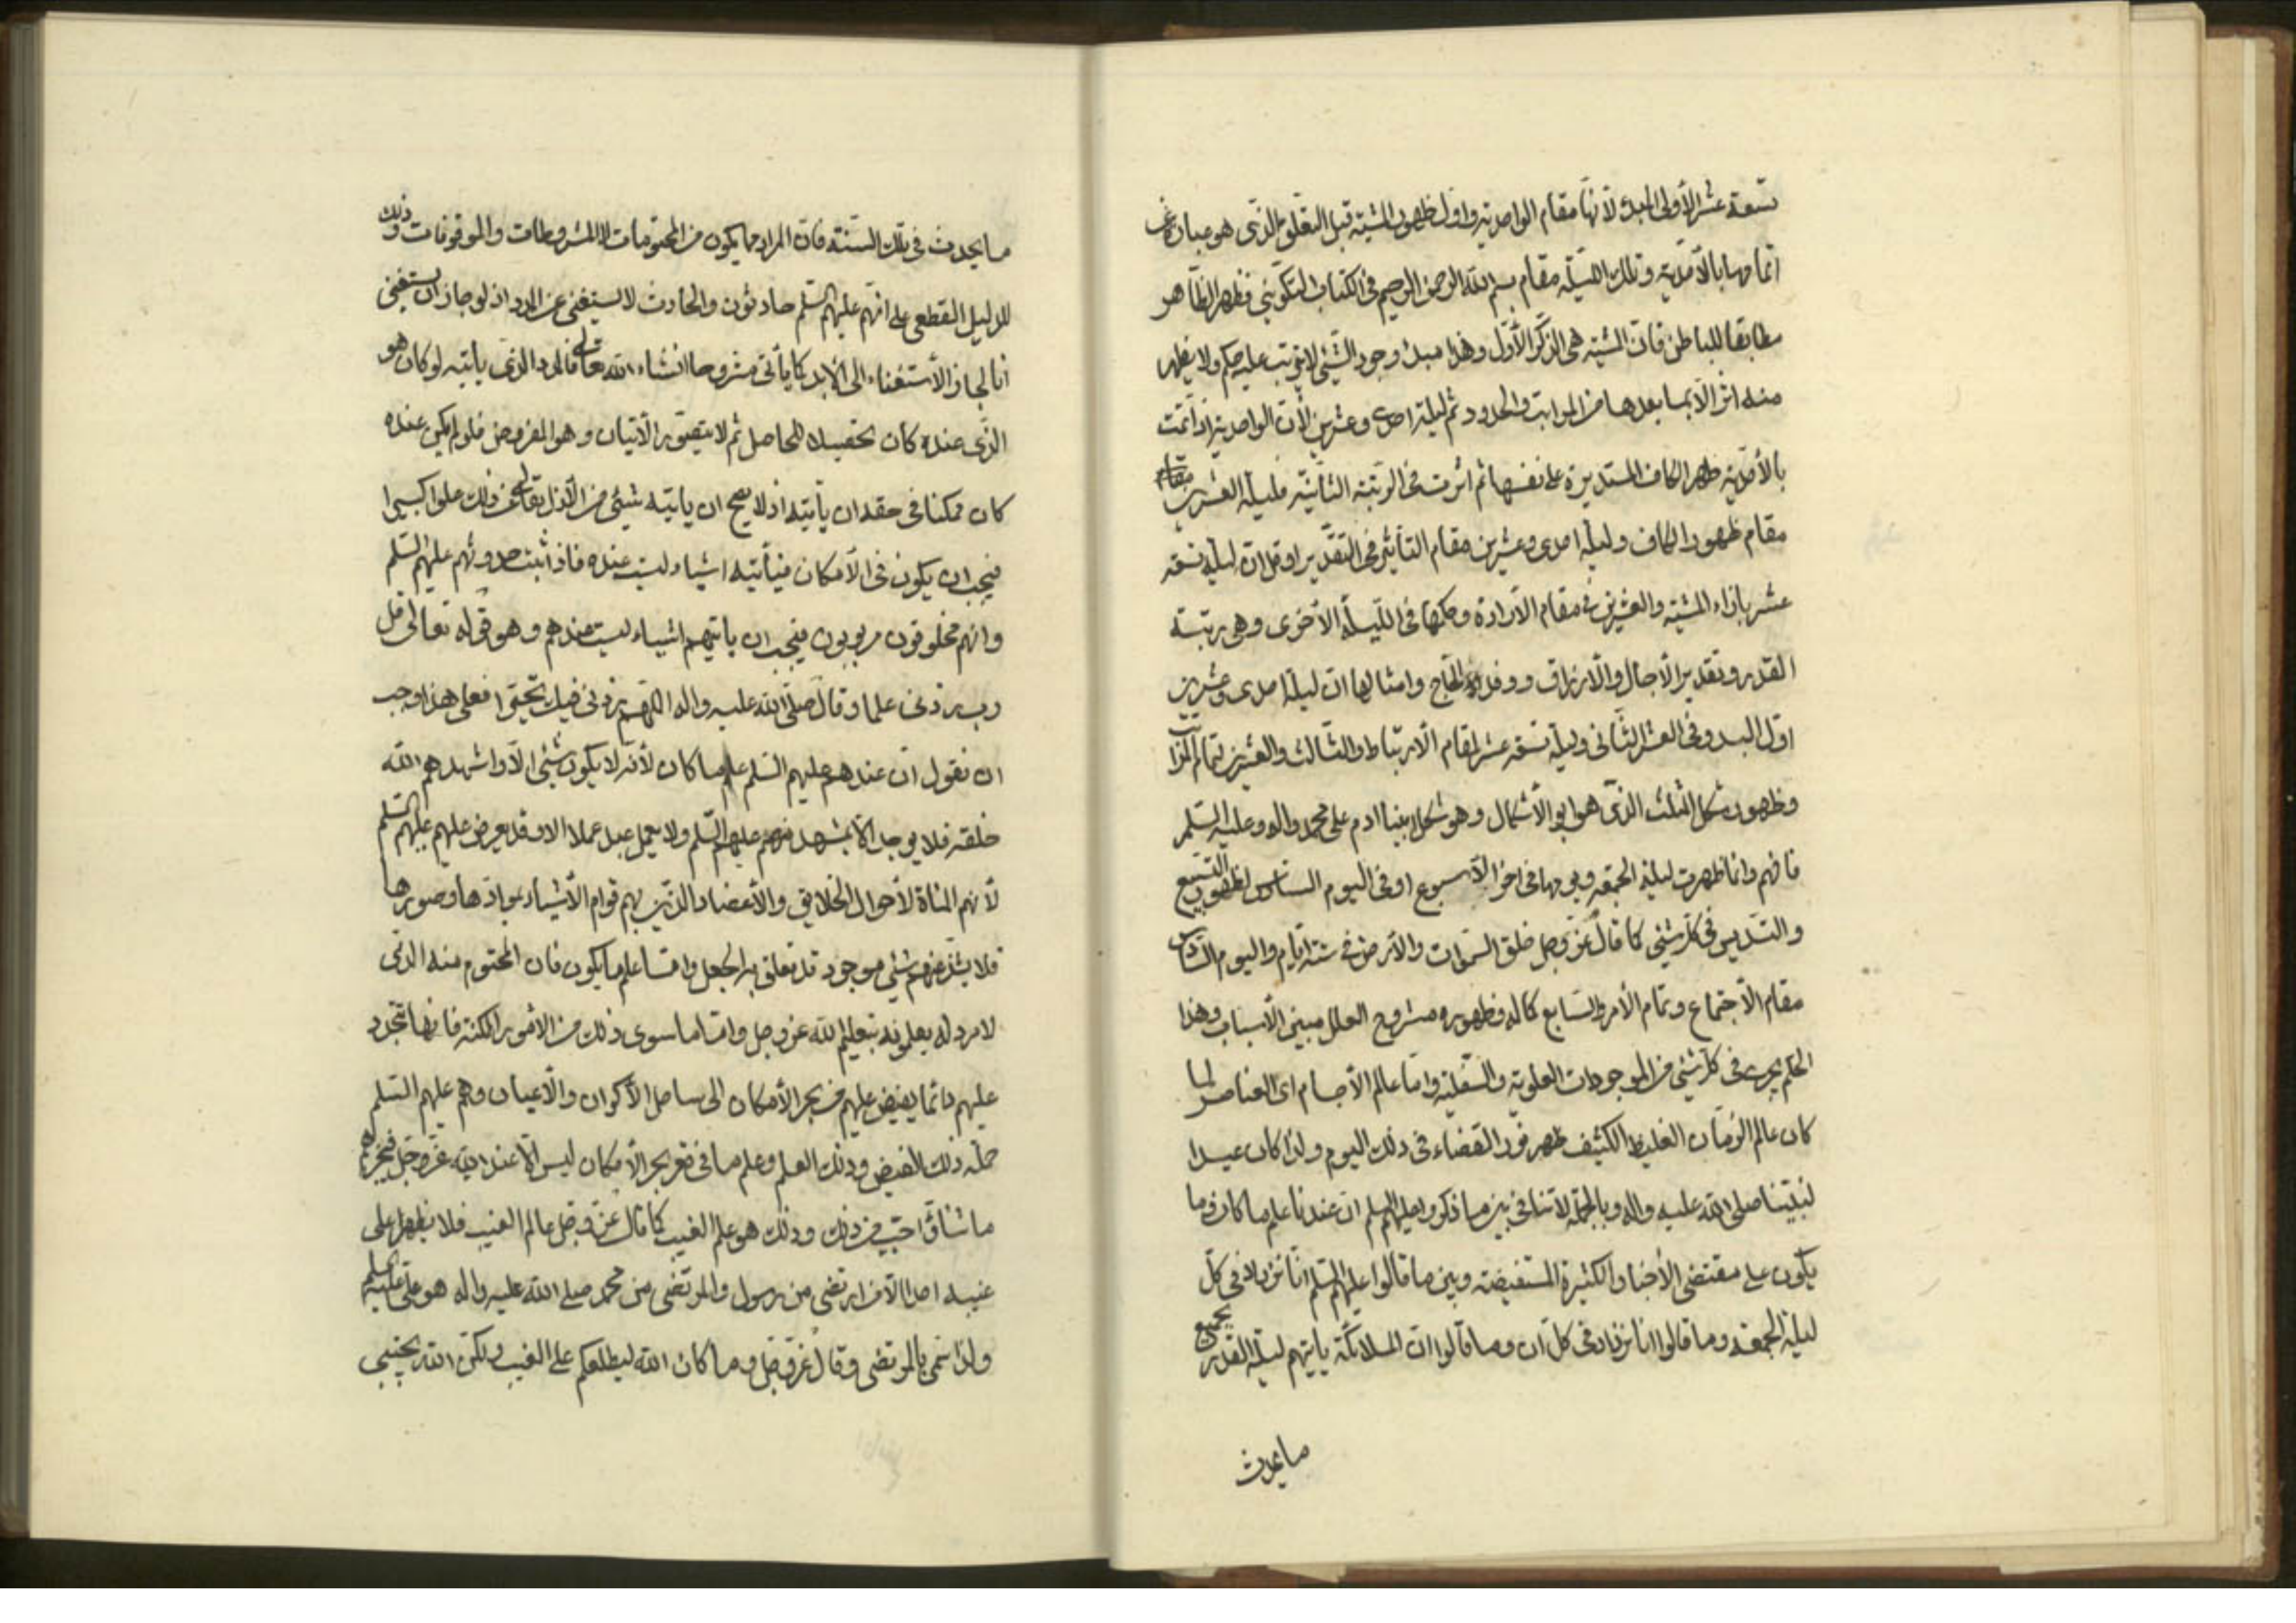 تسعة عشر الأولى المبدء لأنها مقام الواحدية واول ظهور المشية قبل التعلق الذي هو عبارة عن
اتمامها بالأحدية وتلك الليلة مقام بسم الله الرحمن الرحيم في الكتاب التكويني فظهر الظاهر
مطابقا للباطن فان المشية هي الذكر الأول وهذا مبدء وجود الشيء لا يترتب عليه حكم ولا يظهر
منه اثر الا بما بعدها من المراتب والحدود ثم ليلة احدى وعشرين لأن الواحدية اذا تمت
بالأحدية ظهر الكاف المستديرة على نفسها ثم اثرت في الرتبة الثانية فليلة العشرين مقام
مقام ظهور الكاف وليلة احدى وعشرين مقام التأثير في التقدير او قل ان ليلة تسعة
عشر بازاء المشية والعشرين في مقام الارادة وحكمها في الليلة الاخرى وهي رتبة
القدر وتقدير الآجال والارزاق ووفد الحاج وامثالها ان ليلة احدى وعشرين
اول البدو في العشر الثاني وليلة تسعة عشر لمقام الارتباط والثالث والعشرين لتمام المراتب
وظهور شكل المثلث الذي هو ابو الأشكال وهو شكل ابينا ادم على محمد واله وعليه السلم
فافهم وانما ظهرت ليلة الجمعة ويومها في اخر الاسبوع او في اليوم السادس لظهور التسبيع
والتسديس في كل شيء كما قال عز وجل خلق السموات والارض في ستة ايام واليوم السادس
مقام الاجتماع وتمام الأمر والسابع كماله وظهوره مشروح العلل مبين الأسباب وهذا
الحكم يجري في كل شيء من الموجودات العلوية والسفلية واما عالم الأجسام اى العناصر لما
كان عالم الزمان الغليظ الكثيف ظهر فور القضاء في ذلك اليوم ولذا كان عيدا
لنبينا صلى الله عليه واله وبالجملة لا تنافى بين ما ذكروا عليهم السلم ان عندنا علم ما كان وما
يكون على مقتضى الأخبار الكثيرة المستفيضة وبين ما قالوا عليهم السلم انا نزداد في كل
ليلة الجمعة وما قالوا انا نزداد في كل ان وما قالوا ان الملائكة يأتيهم ليلة القدر بجميع
ما يحدث
ما يحدث في تلك السنة فان المراد بما يكون من المحتومات لا المشروطات والموقوفات وذلك
للدليل القطعي على انهم عليهم السلم حادثون والحادث لا يستغنى عن المدد اذ لو جاز ان يستغنى
انا لجاز الأستغناء الى الابد كما يأتى مشروحا انشاء الله تعالى فالمدد الذي يأتيه لو كان هو
الذي عنده كان تحصيلا للحاصل ثم لا يتصور الأتيان وهو المفروض فلو لم يكن عنده
كان ممكنا في حقه ان يأتيه اذ لا يصح ان يأتيه شيء من الأزل تعالى عن ذلك علوا كبيرا
فيجب ان يكون في الأمكان فيأتيه اشياء ليست عنده فاذا ثبت حدوثهم عليهم السلم
وانهم مخلوقون مربوبون فيجب ان يأتيهم اشياء ليست عندهم وهو قوله تعالى قل
رب زدني علما وقال صلى الله عليه واله اللهم زدني فيك تحيرا فعلى هذا وجب
ان نقول ان عندهم عليهم السلم علم ما كان لأنه لا يكون شيء الا واشهدهم الله
خلقه فلا يوجد الا بمشهد منهم عليهم السلم ولا يعمل عبد عملا الا وقد يعرض عليهم عليهم السلم
لأنهم المناة لأحوال الخلايق والأعضاد الذين بهم قوام الأشياء بموادها وصورها
فلا يشذ عنهم شيء موجود قد تعلق به الجعل واما علم ما يكون فان المحتوم منه الذي
لا مرد له يعلمونه بتعليم الله عز وجل واما ما سوى ذلك من الامور الممكنة فانها تتجدد
عليهم دائما يفيض عليهم من بحر الأمكان الى ساحل الأكوان والأعيان وهم عليهم السلم
حملة ذلك الفيض وذلك العلم وعلم ما في قعر بحر الأمكان ليس الا عند الله عز وجل فيخرج
ما شاء واحب من ذلك وذلك هو علم الغيب كما قال عز وجل عالم الغيب فلا يظهر على
غيبه احدا الا من ارتضى من رسول والمرتضى من محمد صلى الله عليه واله هو على عليه السلم
ولذا سمى بالمرتضى وقال عز وجل وما كان الله ليطلعكم على الغيب ولكن الله يجتبي